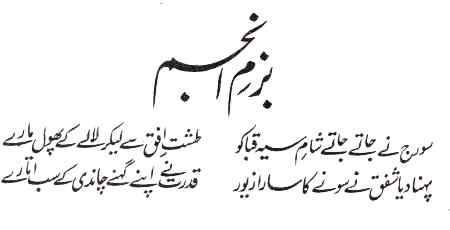 بزمِ انجم
سورج نے جاتے جاتے شامِ سیہ قبا کو طشتِ افق سے لیکر لالے کے پھول مارے
پہنا دیا شفق نے سونے کا سارا زیور قدرت نے اپنے گہنے چاندی کے سب اتارے